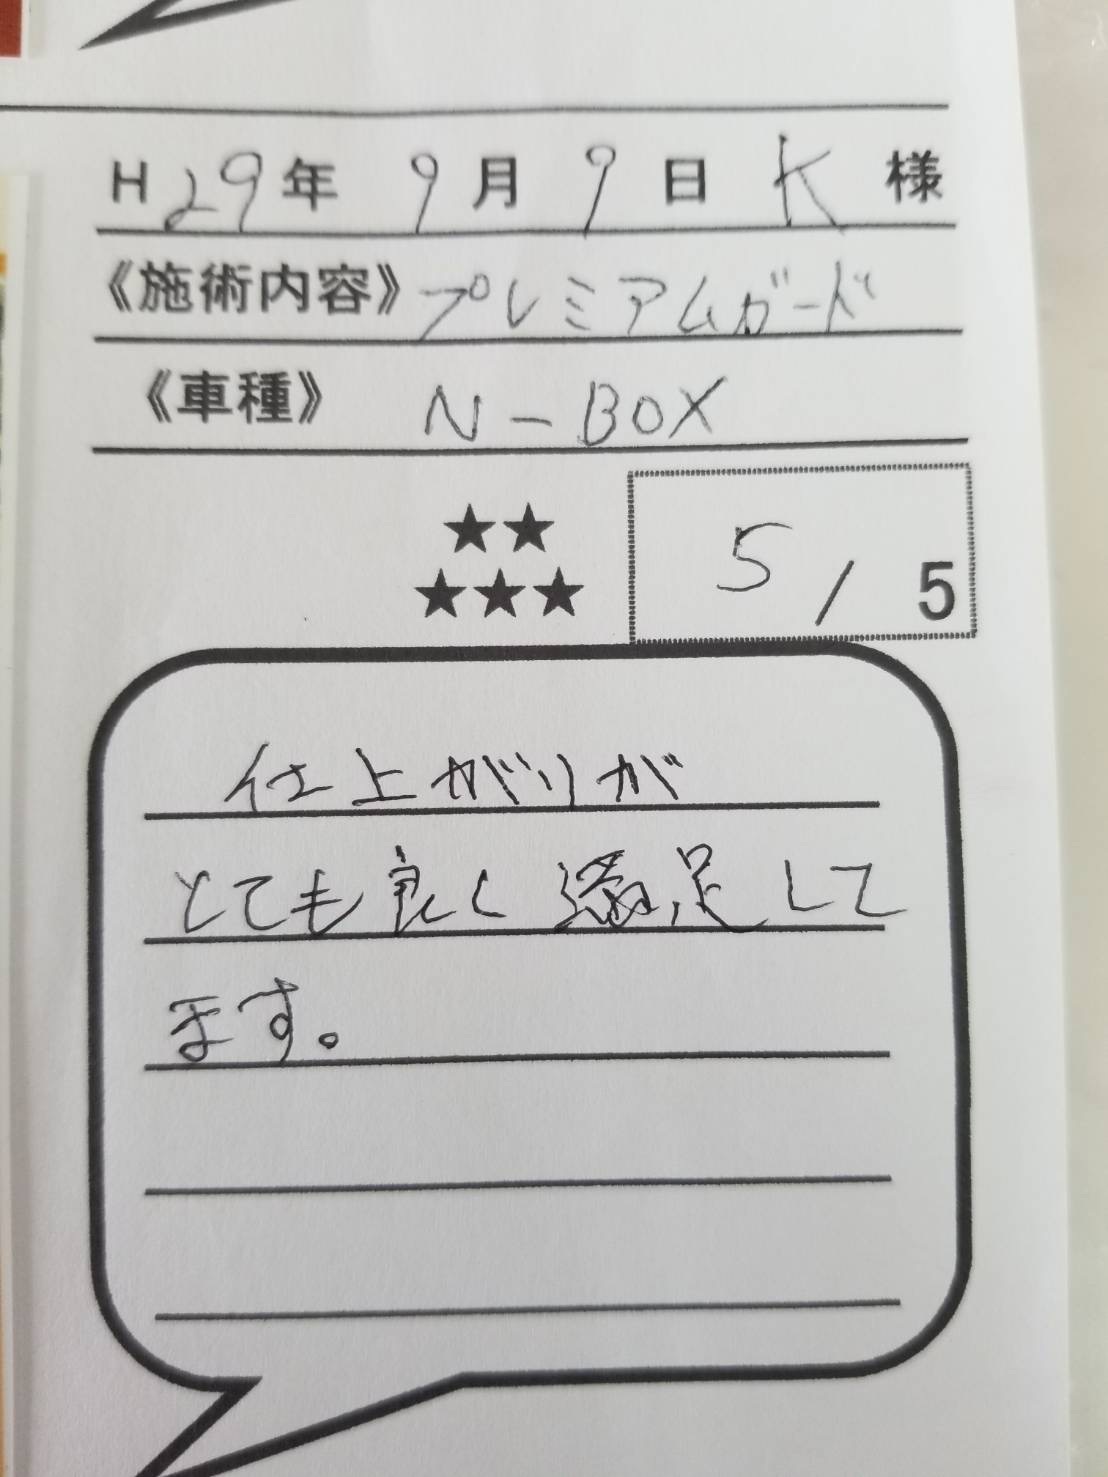 H29年 9月 9日 K 様
《施術内容》プレミアムガード
《車種》 N-BOX
★★
★★★ 5/5
仕上がりが
とても良く満足して
ます。